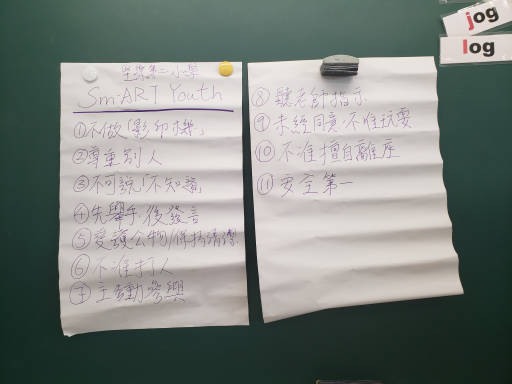 聖漾第二小學
SmART Youth
①不做「影印機」
②尊重別人
③不可說「不知道」
④先舉手,後發言
⑤愛護公物/保持清潔
⑥不准打人
⑦主動參與
⑧聽老師指示
⑨未經同意,不准玩耍
⑩不准擅自離座
⑪安全第一
jog
log